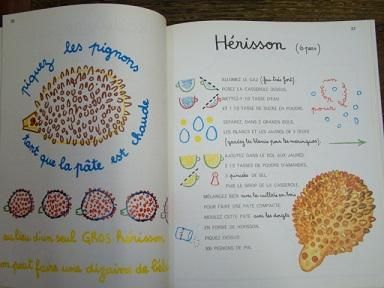 piquez les pignons
tant que la pâte est chaude
au lieu d'un seul GROS hérisson,
on peut faire une dizaine de bébés
Hérisson (6 pers)
ALLUMEZ LE GAZ (feu très fort).
POSEZ LA CASSEROLE DESSUS,
METTEZ-Y 1/2 TASSE D'EAU
ET 1 1/2 TASSE DE SUCRE EN POUDRE.
SEPAREZ, DANS 2 GRANDS BOLS,
LES BLANCS ET LES JAUNES DE 3 OEUFS
(gardez les blancs pour les meringues).
AJOUTEZ DANS LE BOL AUX JAUNES
2 1/2 TASSES DE POUDRE D'AMANDES,
PINCEE DE SEL,
PUIS LE SIROP DE LA CASSEROLE.
MELANGEZ BIEN avec la cuillère en bois
POUR FAIRE UNE PATE COMPACTE.
MOULEZ CETTE PATE avec les doigts
EN FORME DE HERISSON.
PIQUEZ DESSUS
100 PIGNONS DE PIN.